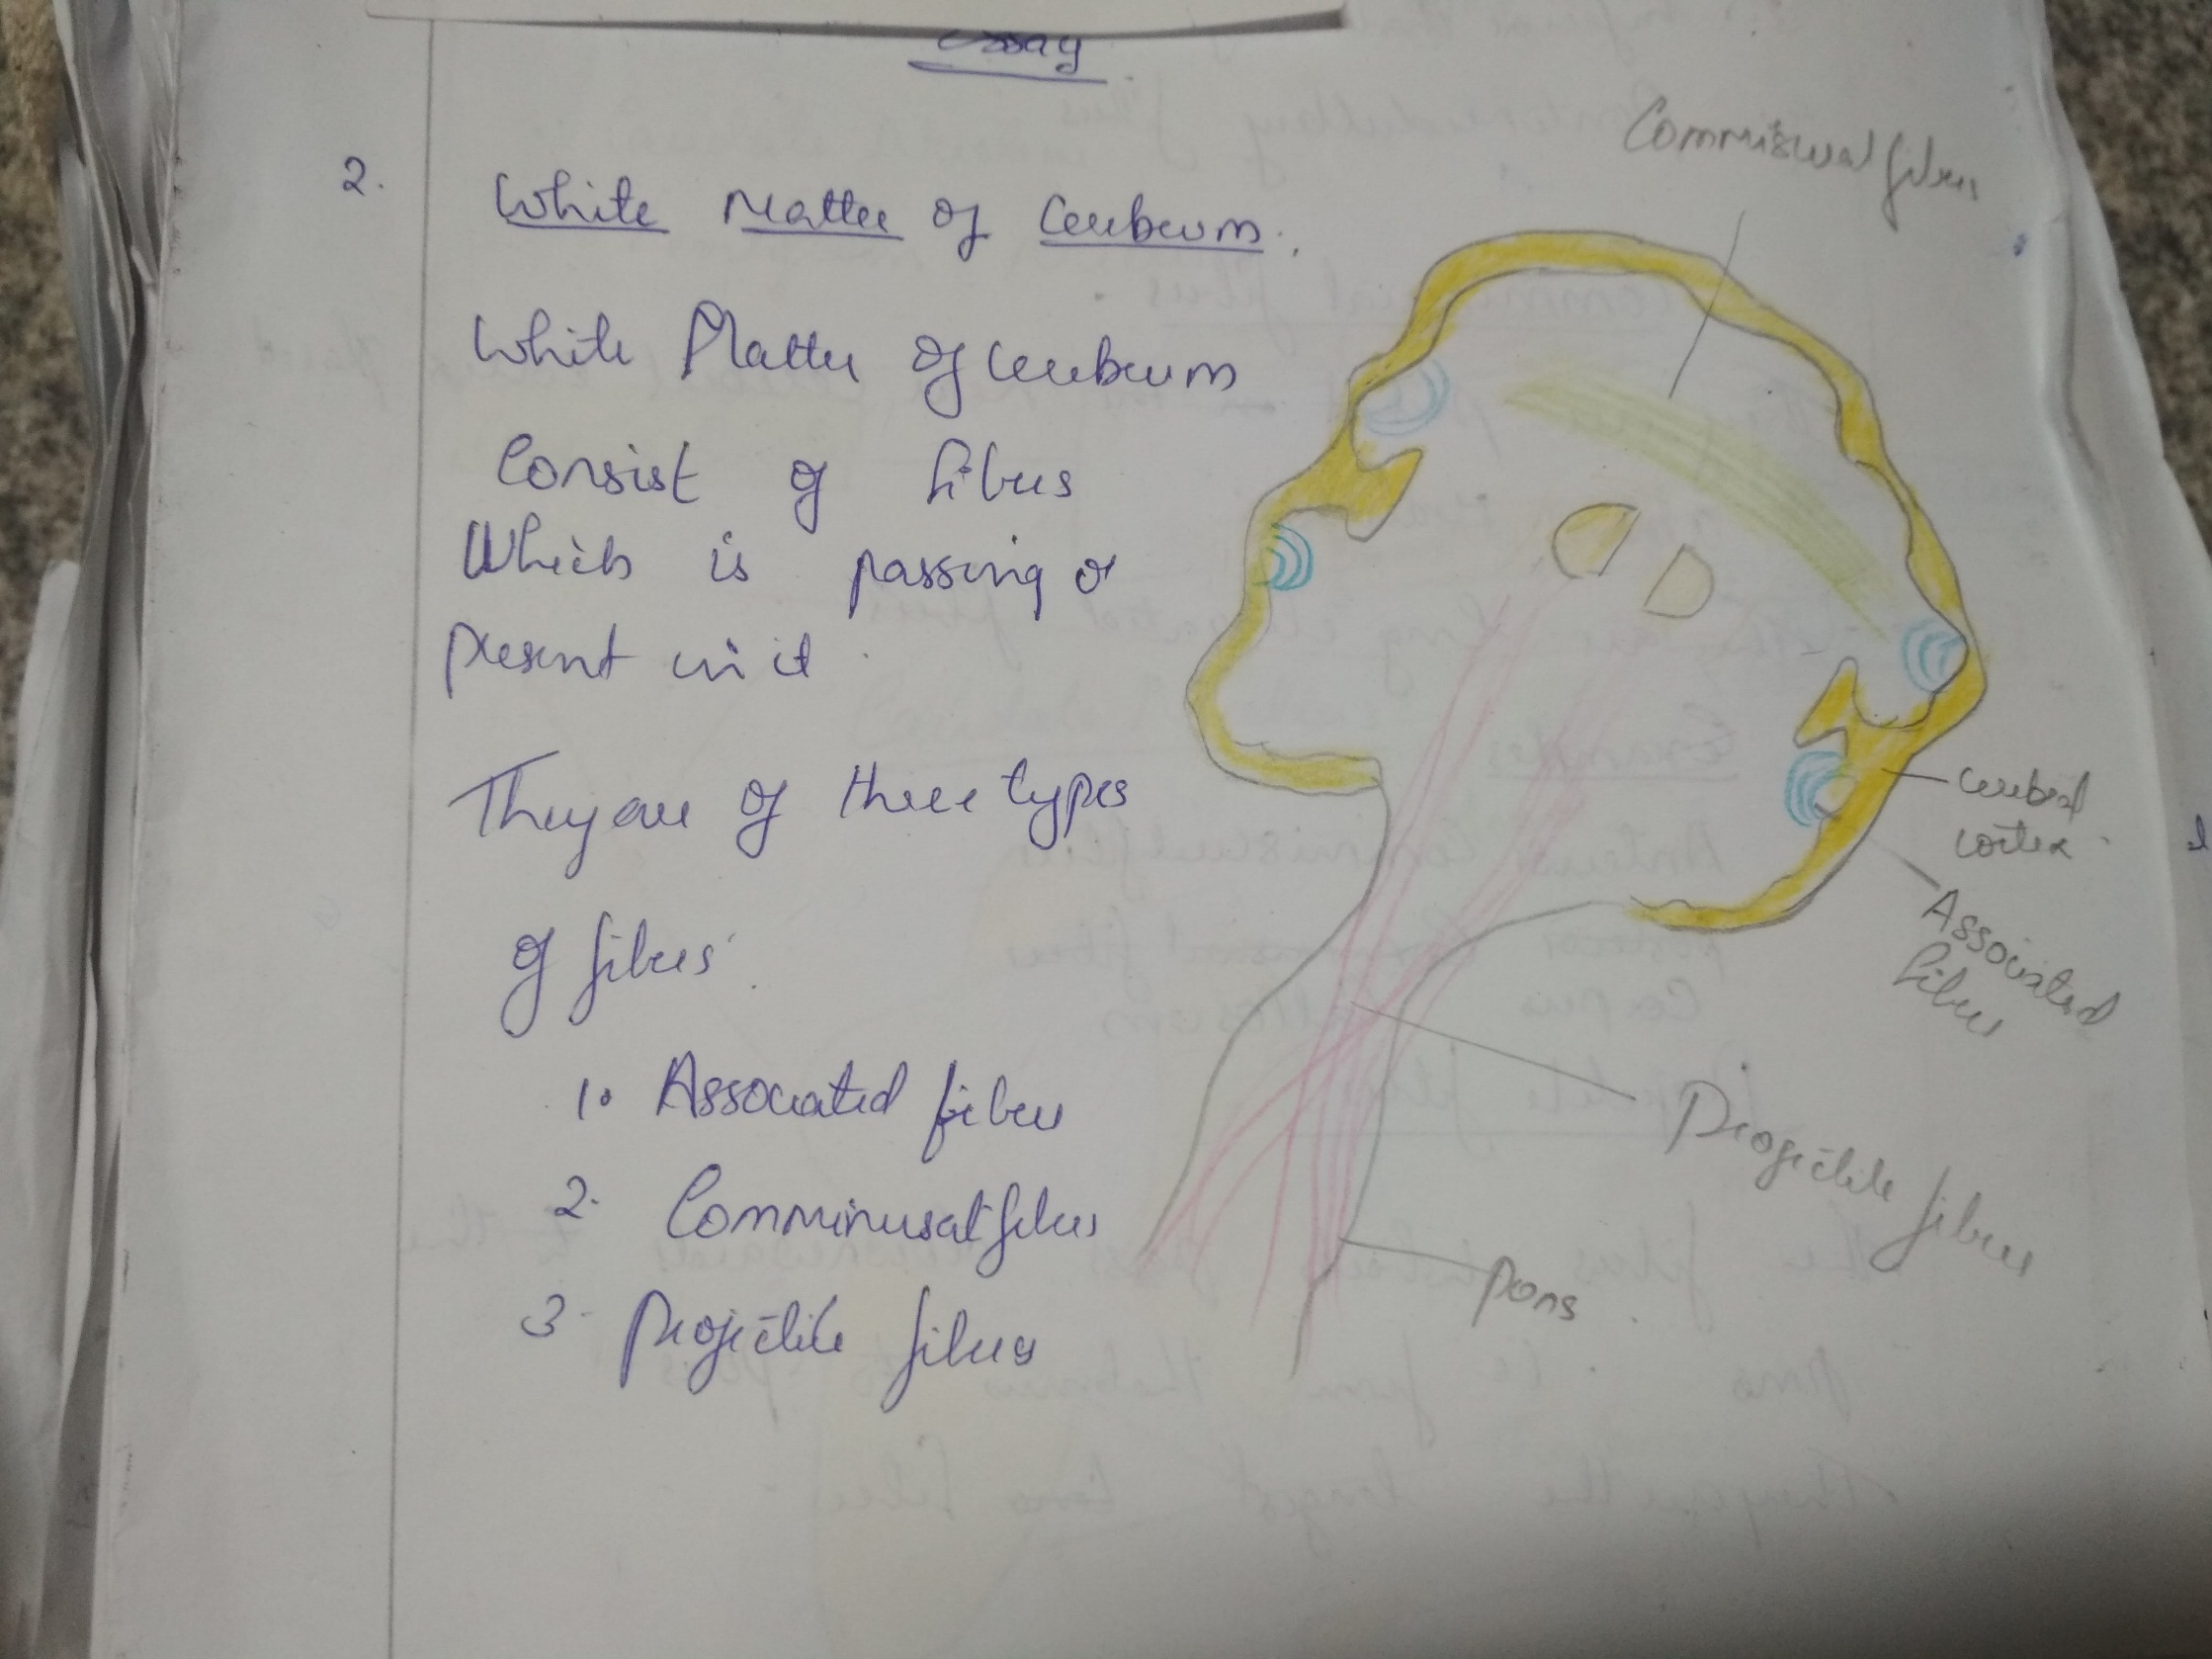 essay
2. White Matter of Cerebrum.
White Matter of Cerebrum
Consist of fibers
Which is passing or
present in it.
They are of three types
of fibers.
1. Associated fiber
2. Comminusat fibers
3. Projectile fibers
Commisural fibers
Cerebral
cortex
Associated
fiber
Projectile fiber
pons